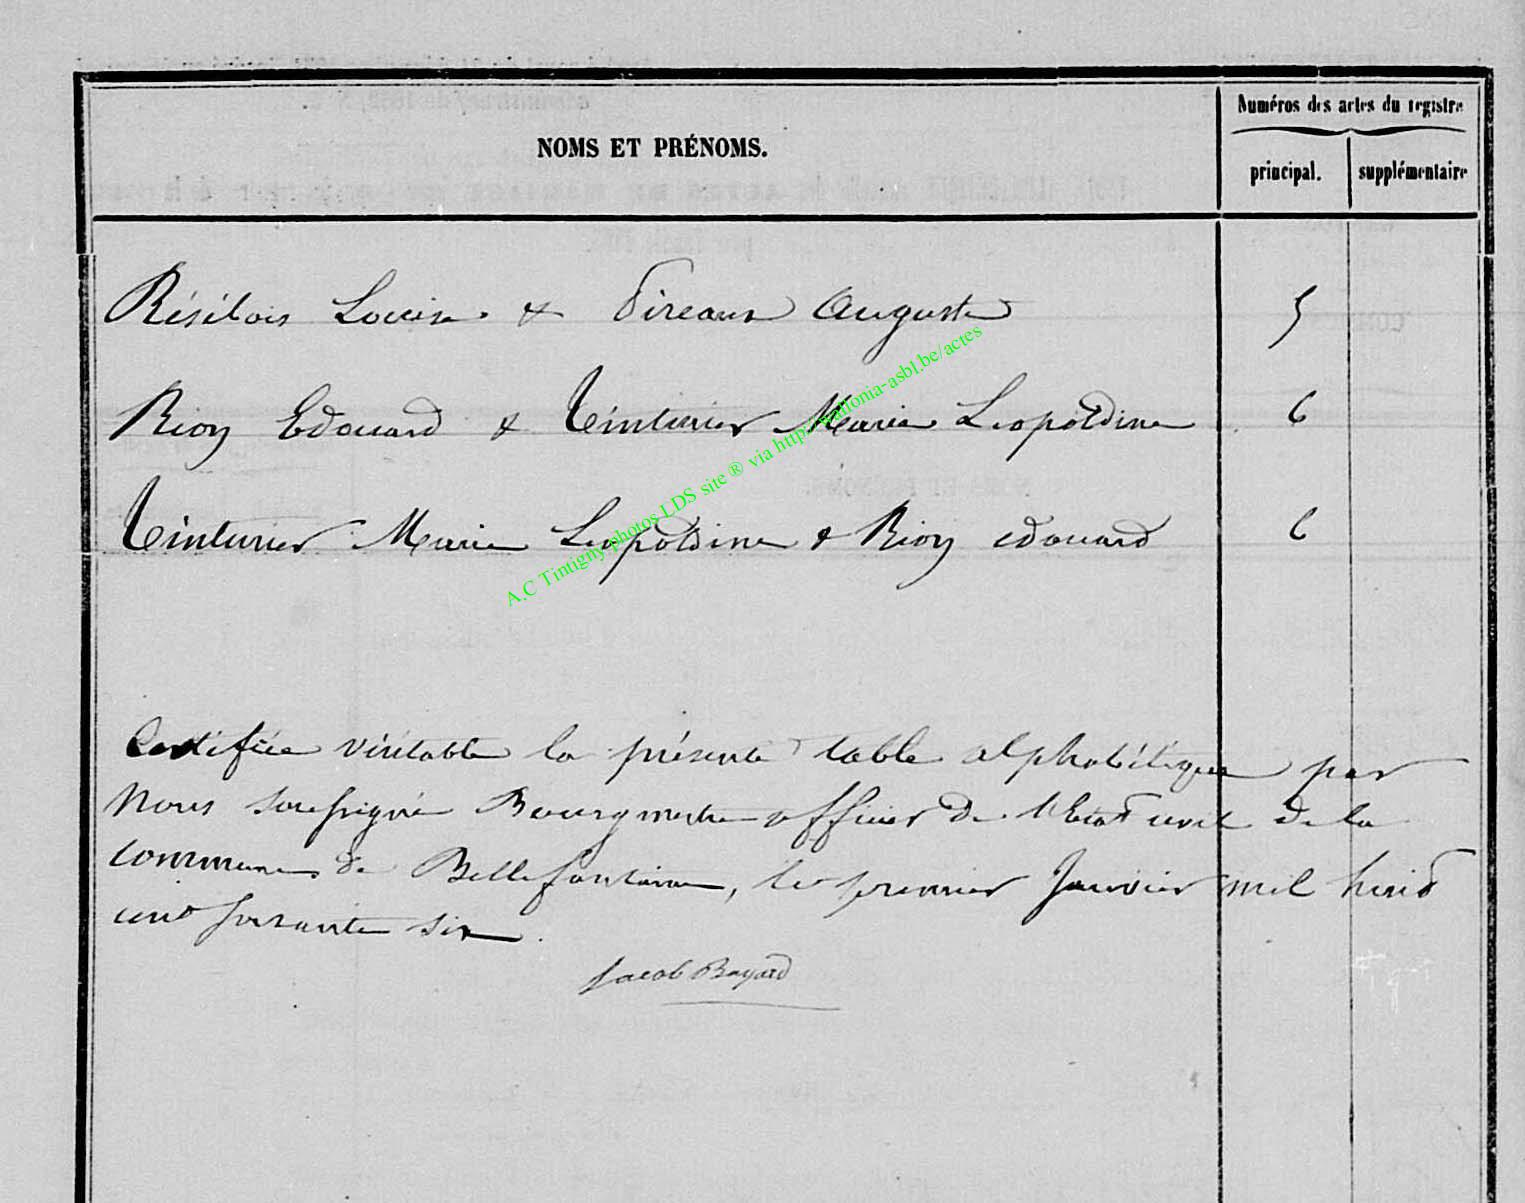 Numéros des actes du registre
NOMS ET PRÉNOMS.
principal. supplémentaire
Résibois Louise & Pireaux Auguste 5
Rion Edouard & Tinturier Marie Léopoldine 6
Tinturier Marie Léopoldine & Rion edouard 6
Certifiée véritable la présente table alphabétique par
Nous soussigné Bourgmestre officier de l'Etat civil de la
commune de Bellefontaine, le premier Janvier mil huit
cent soixante six.
Jacob Bayard
A.C Tintigny photos LDS site ® via http://wallonia-asbl.be/actes